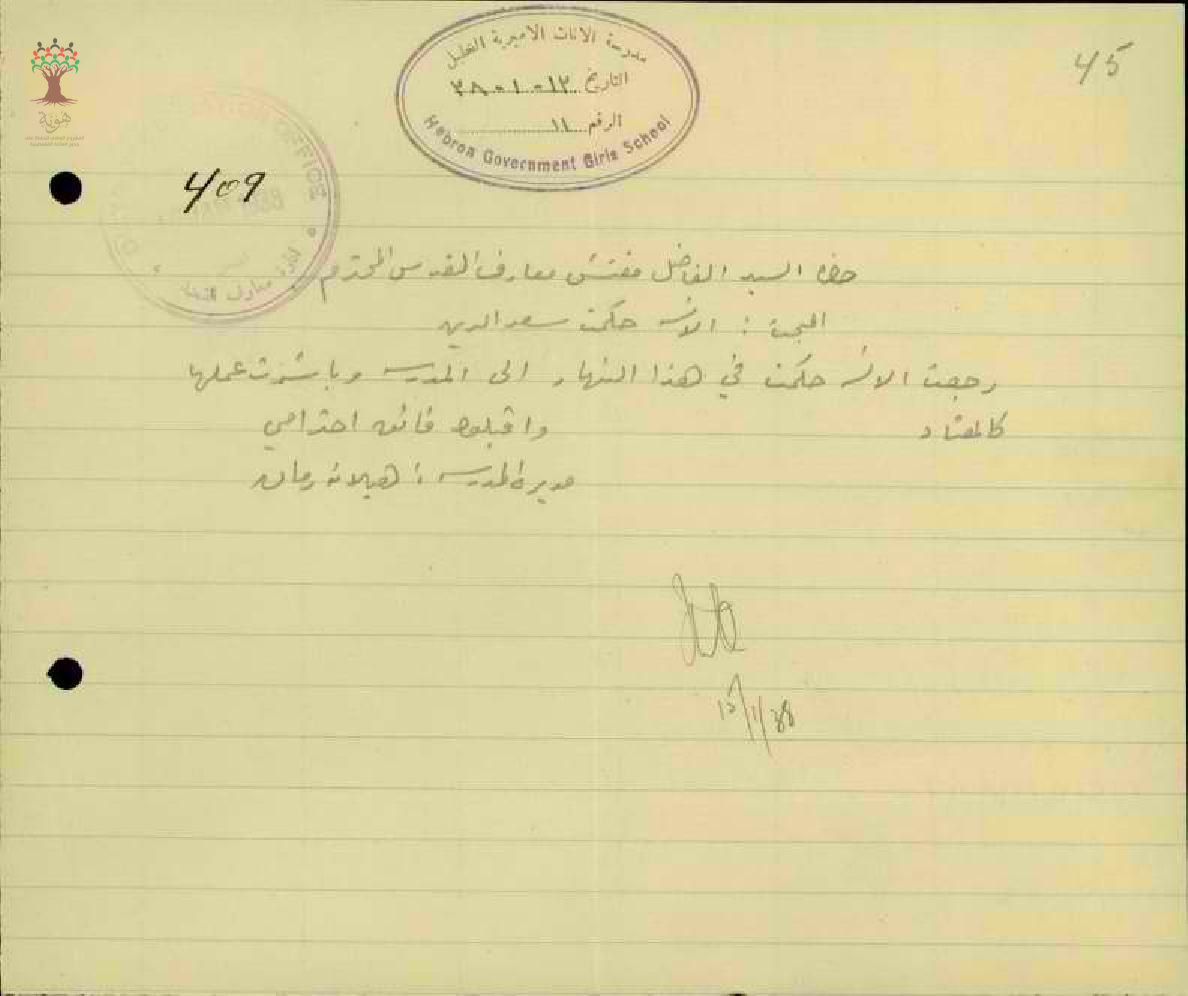 45
مدرسة الاناث الاميرية الخليل
التاريخ ١٢-١-٣٨
الرقم ١١
Hebron Government Girls School
هوية
OFFICE
409
حضرة السيد الفاضل مفتش معارف القدس المحترم
المبحث : الآنسة حكمت سعد الدين
رجعت الآنسة حكمت في هذا النهار الى المدرسة وباشرت عملها
كالمعتاد واقبلوا فائق احترامي
مديرة المدرسة : هيلانة رمان
15/1/38